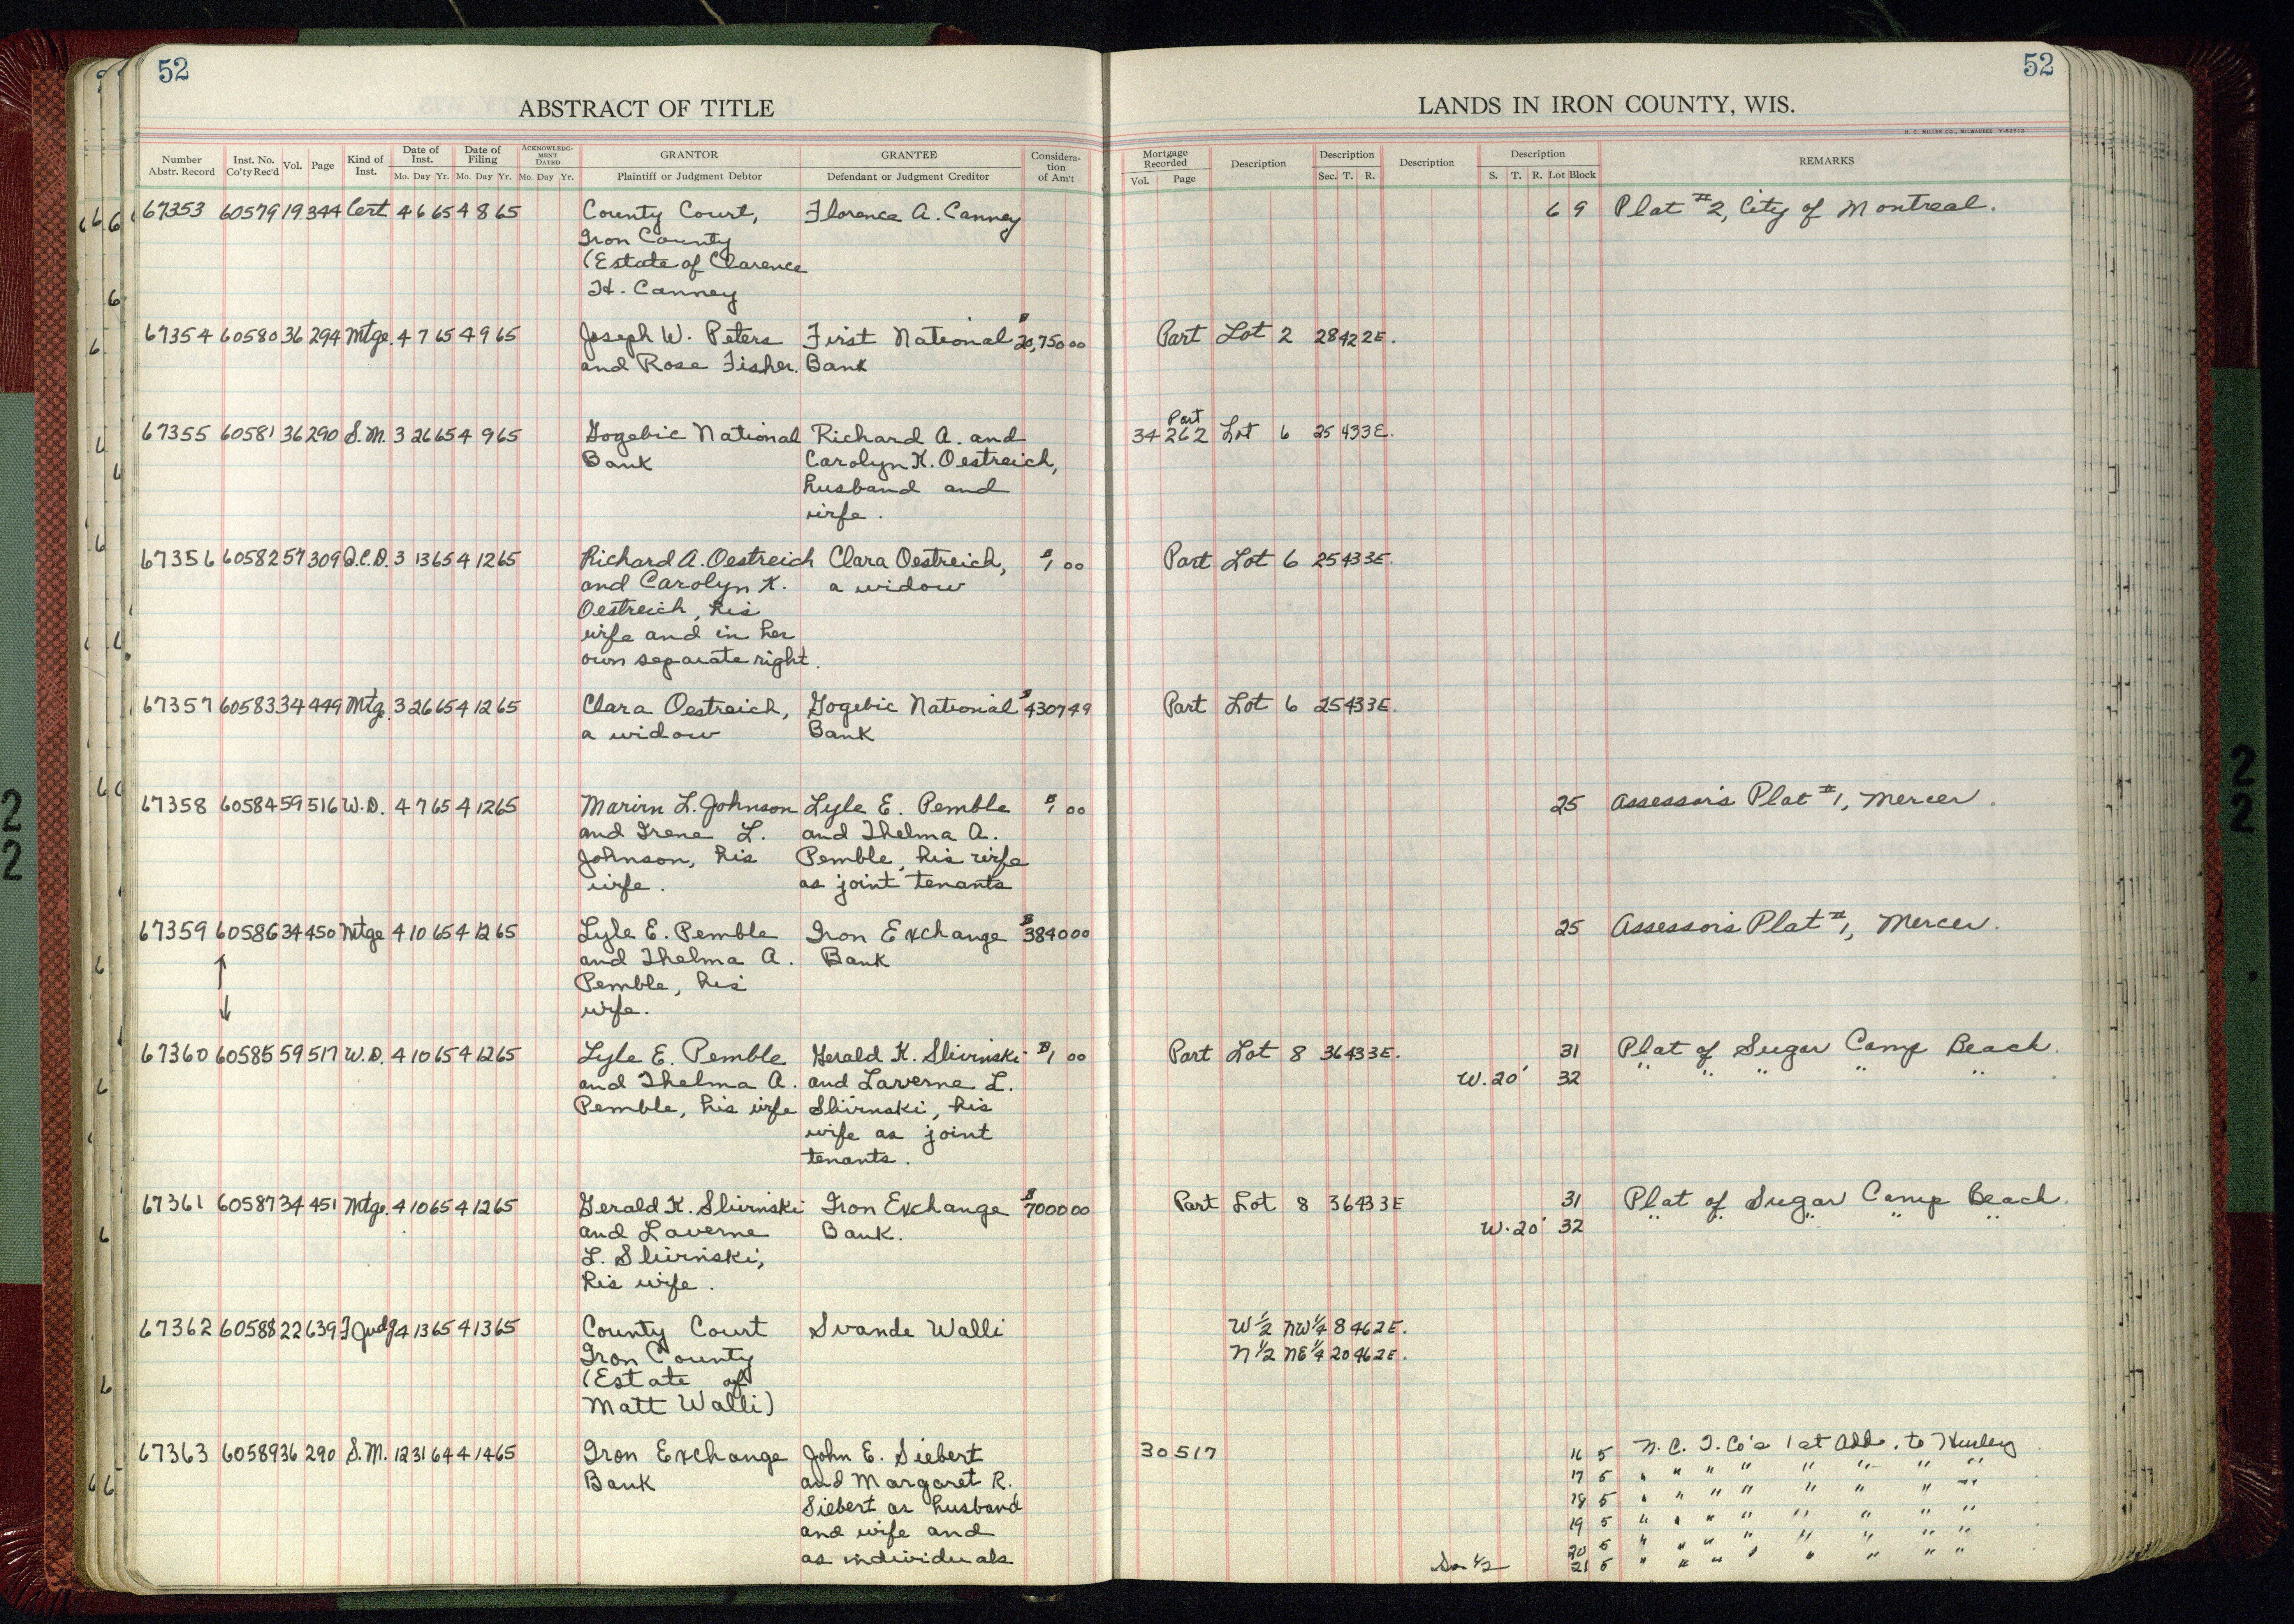 52
52
ABSTRACT OF TITLE
LANDS IN IRON COUNTY, WIS.
H. C. MILLER CO., MILWAUKEE
Number Abstr. Record Inst. No. Co'ty Rec'd Vol. Page Kind of Inst. Date of Inst. Mo. Day Yr. Date of Filing Mo. Day Yr. ACKNOWLEDGMENT DATED Mo. Day Yr. GRANTOR Plaintiff or Judgment Debtor GRANTEE Defendant or Judgment Creditor Consideration of Am't
Mortgage Recorded Vol. Page Description Description Sec. T. R. Description Description S. T. R. Lot Block REMARKS
67353 60579 19 344 Cert 4 6 65 4 8 65 County Court, Florence A. Canney 6 9 Plat #2, City of Montreal.
Iron County
(Estate of Clarence
H. Canney
67354 60580 36 294 Mtge. 4 7 65 4 9 65 Joseph W. Peters First National $20,750 00 Part Lot 2 28 42 2E.
and Rose Fisher. Bank
67355 60581 36 290 S.M. 3 26 65 4 9 65 Gogebic National Richard A. and 34 262 Part Lot 6 25 43 3E.
Bank Carolyn K. Oestreich,
husband and
wife.
67356 60582 57 309 Q.C.D. 3 13 65 4 12 65 Richard A. Oestreich Clara Oestreich, $1 00 Part Lot 6 25 43 3E.
and Carolyn K. a widow
Oestreich, his
wife and in her
own separate right.
67357 60583 34 449 Mtg. 3 26 65 4 12 65 Clara Oestreich, Gogebic National $4307 49 Part Lot 6 25 43 3E.
a widow Bank
67358 60584 59 516 W.D. 4 7 65 4 12 65 Marvin L. Johnson Lyle E. Pemble $1 00 25 Assessor's Plat #1, Mercer.
and Irene L. and Thelma A.
Johnson, his Pemble, his wife
wife. as joint tenants
67359 60586 34 450 Mtge 4 10 65 4 12 65 Lyle E. Pemble Iron Exchange $3840 00 25 Assessor's Plat #1, Mercer.
and Thelma A. Bank
Pemble, his
wife.
67360 60585 59 517 W.D. 4 10 65 4 12 65 Lyle E. Pemble Gerald K. Slivinski $1 00 Part Lot 8 36 43 3E. 31 Plat of Sugar Camp Beach.
and Thelma A. and Laverne L. W. 20' 32 " " " " "
Pemble, his wife Slivinski, his
wife as joint
tenants.
67361 60587 34 451 Mtge. 4 10 65 4 12 65 Gerald K. Slivinski Iron Exchange $7000 00 Part Lot 8 36 43 3E 31 Plat of Sugar Camp Beach.
and Laverne Bank. W. 20' 32 " " " " "
L. Slivinski,
his wife.
67362 60588 22 639 F Judg 4 13 65 4 13 65 County Court Svande Walli W 1/2 NW 1/4 8 46 2E.
Iron County N 1/2 NE 1/4 20 46 2E.
(Estate of
Matt Walli)
67363 60589 36 290 S.M. 12 31 64 4 14 65 Iron Exchange John E. Siebert 30 517 16 5 N. C. I. Co's 1st Add. to Hurley
Bank and Margaret R. 17 5 " " " " " " " "
Siebert as husband 18 5 " " " " " " " "
and wife and 19 5 " " " " " " " "
as individuals 20 5 " " " " " " " "
So 1/2 21 5 " " " " " " " "